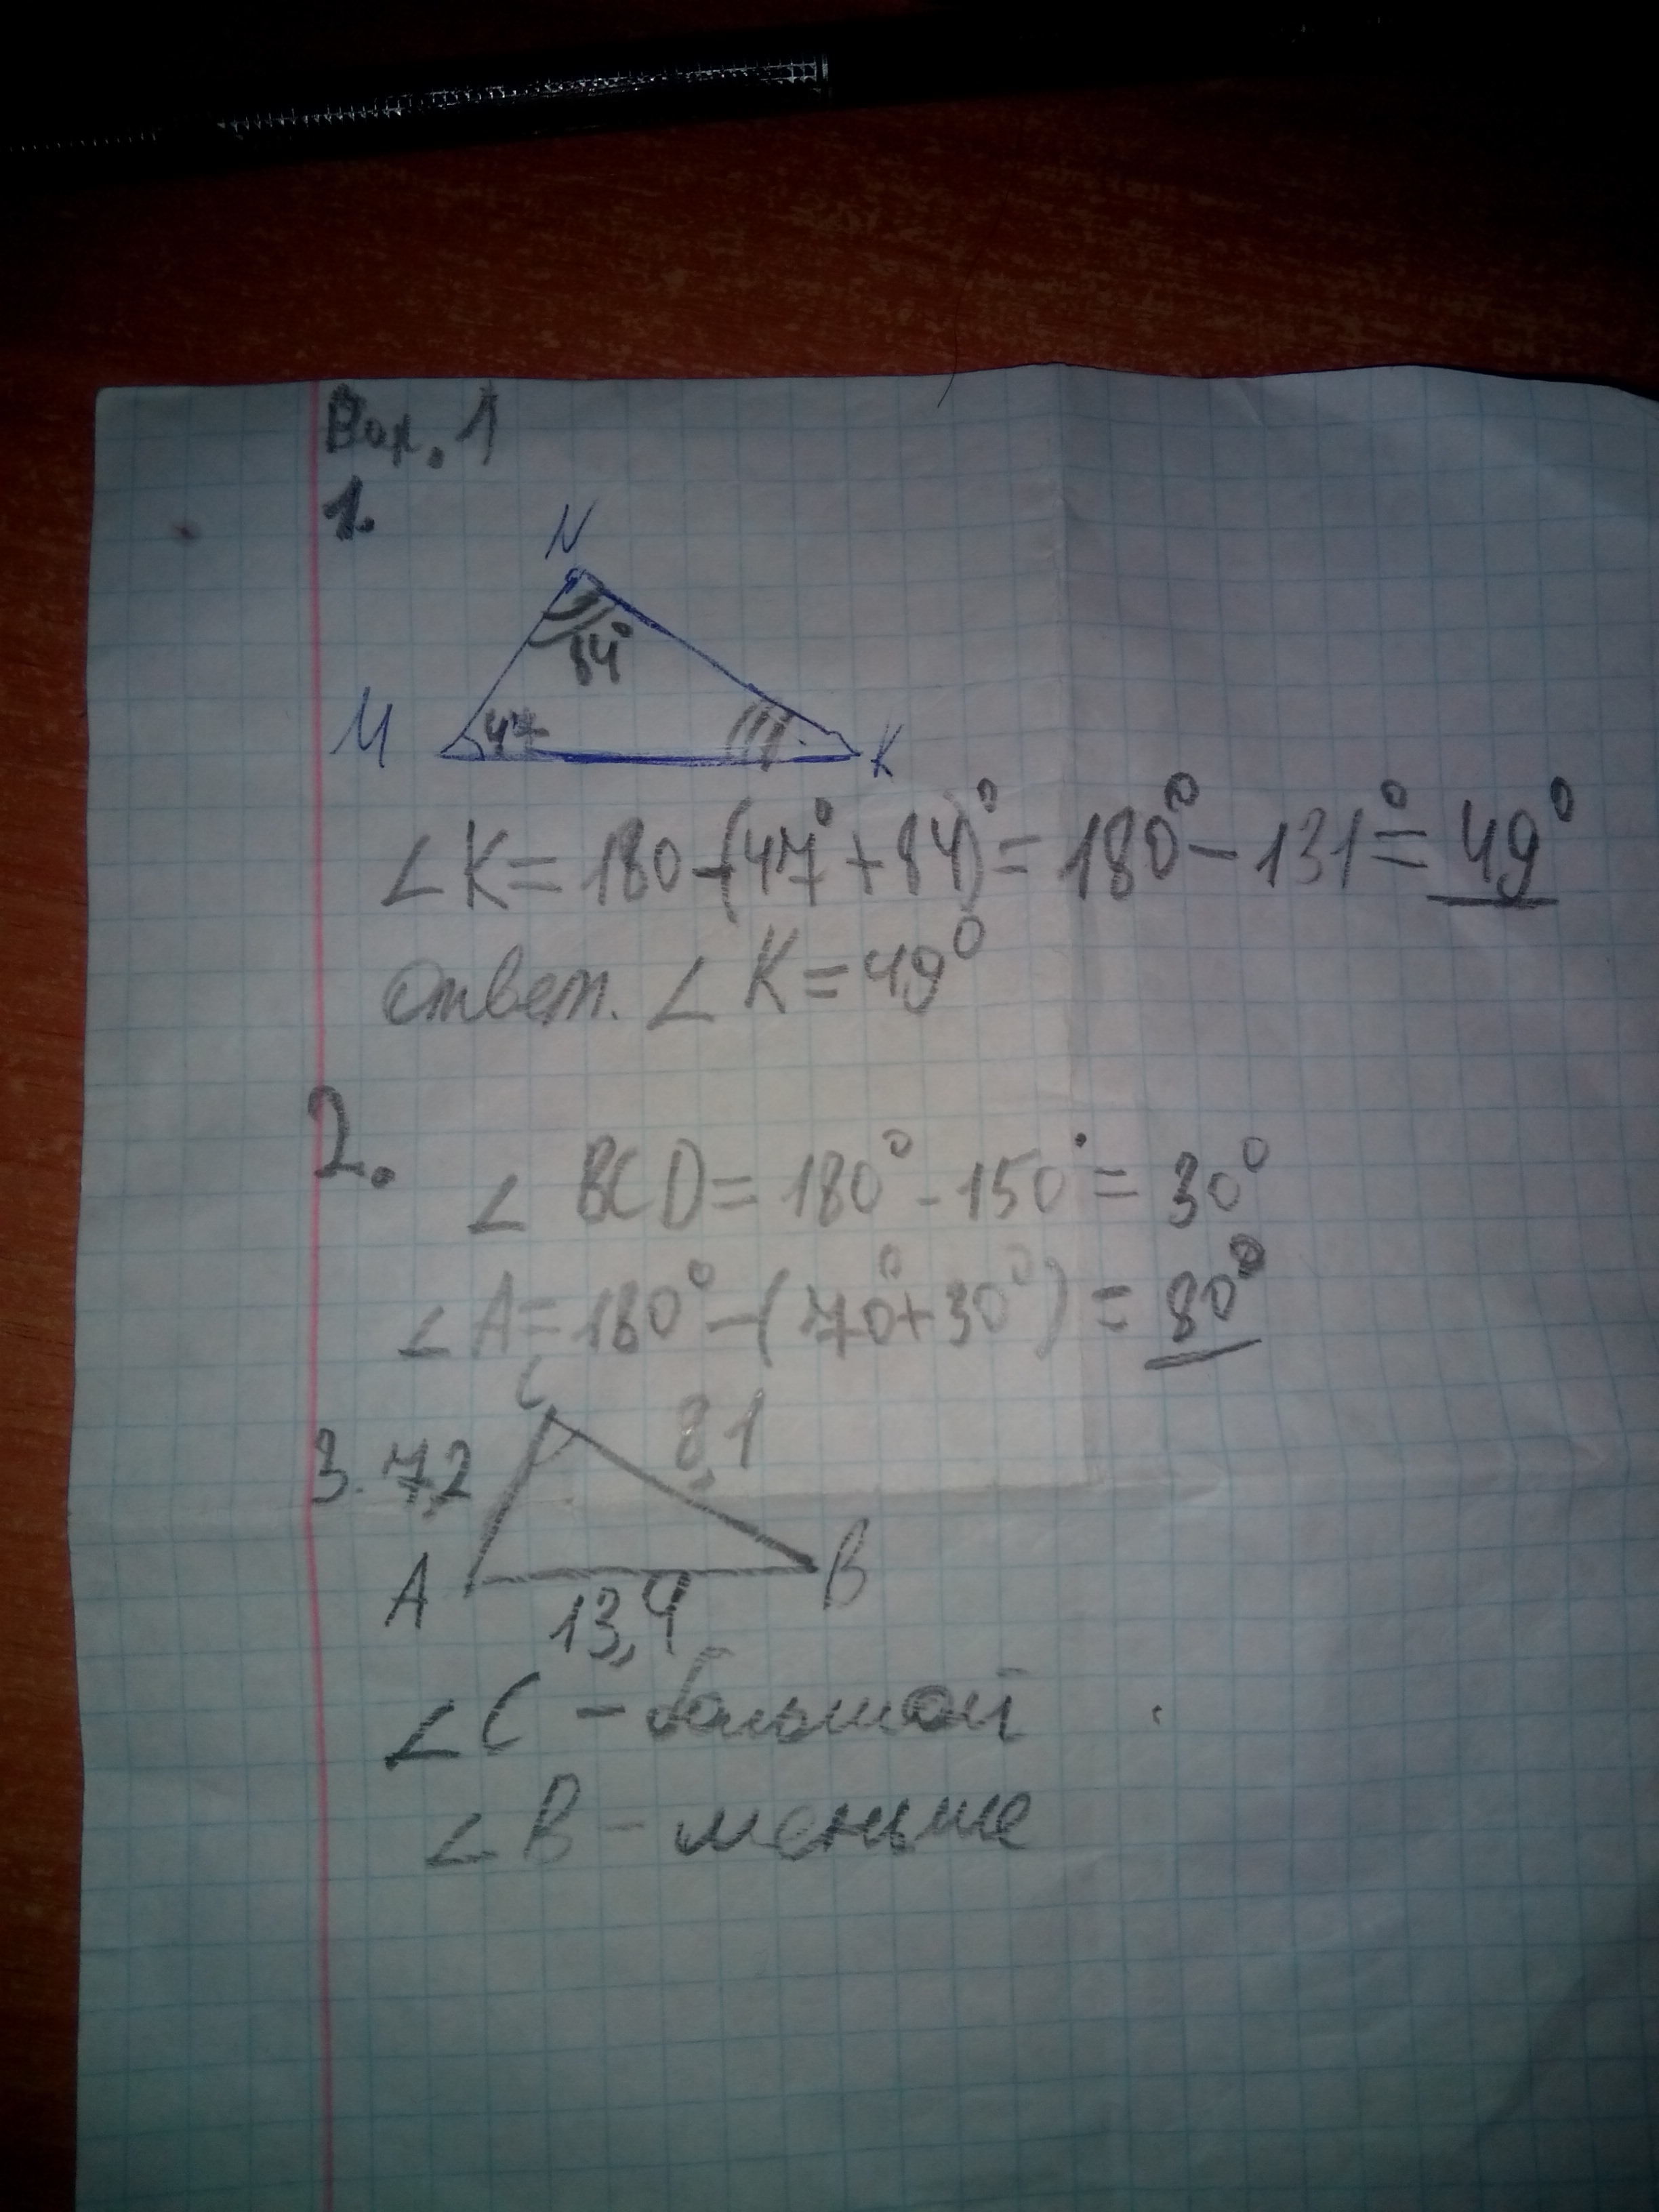 Вар. 1
1.
N
84°
M 47 K
∠K = 180 - (47° + 84)° = 180° - 131° = 49°
ответ. ∠K = 49°
2. ∠ BCD = 180° - 150° = 30°
∠A = 180° - (70° + 30°) = 80°
C
3. 7,2 8,1
A B
13,4
∠C - большой
∠B - меньше